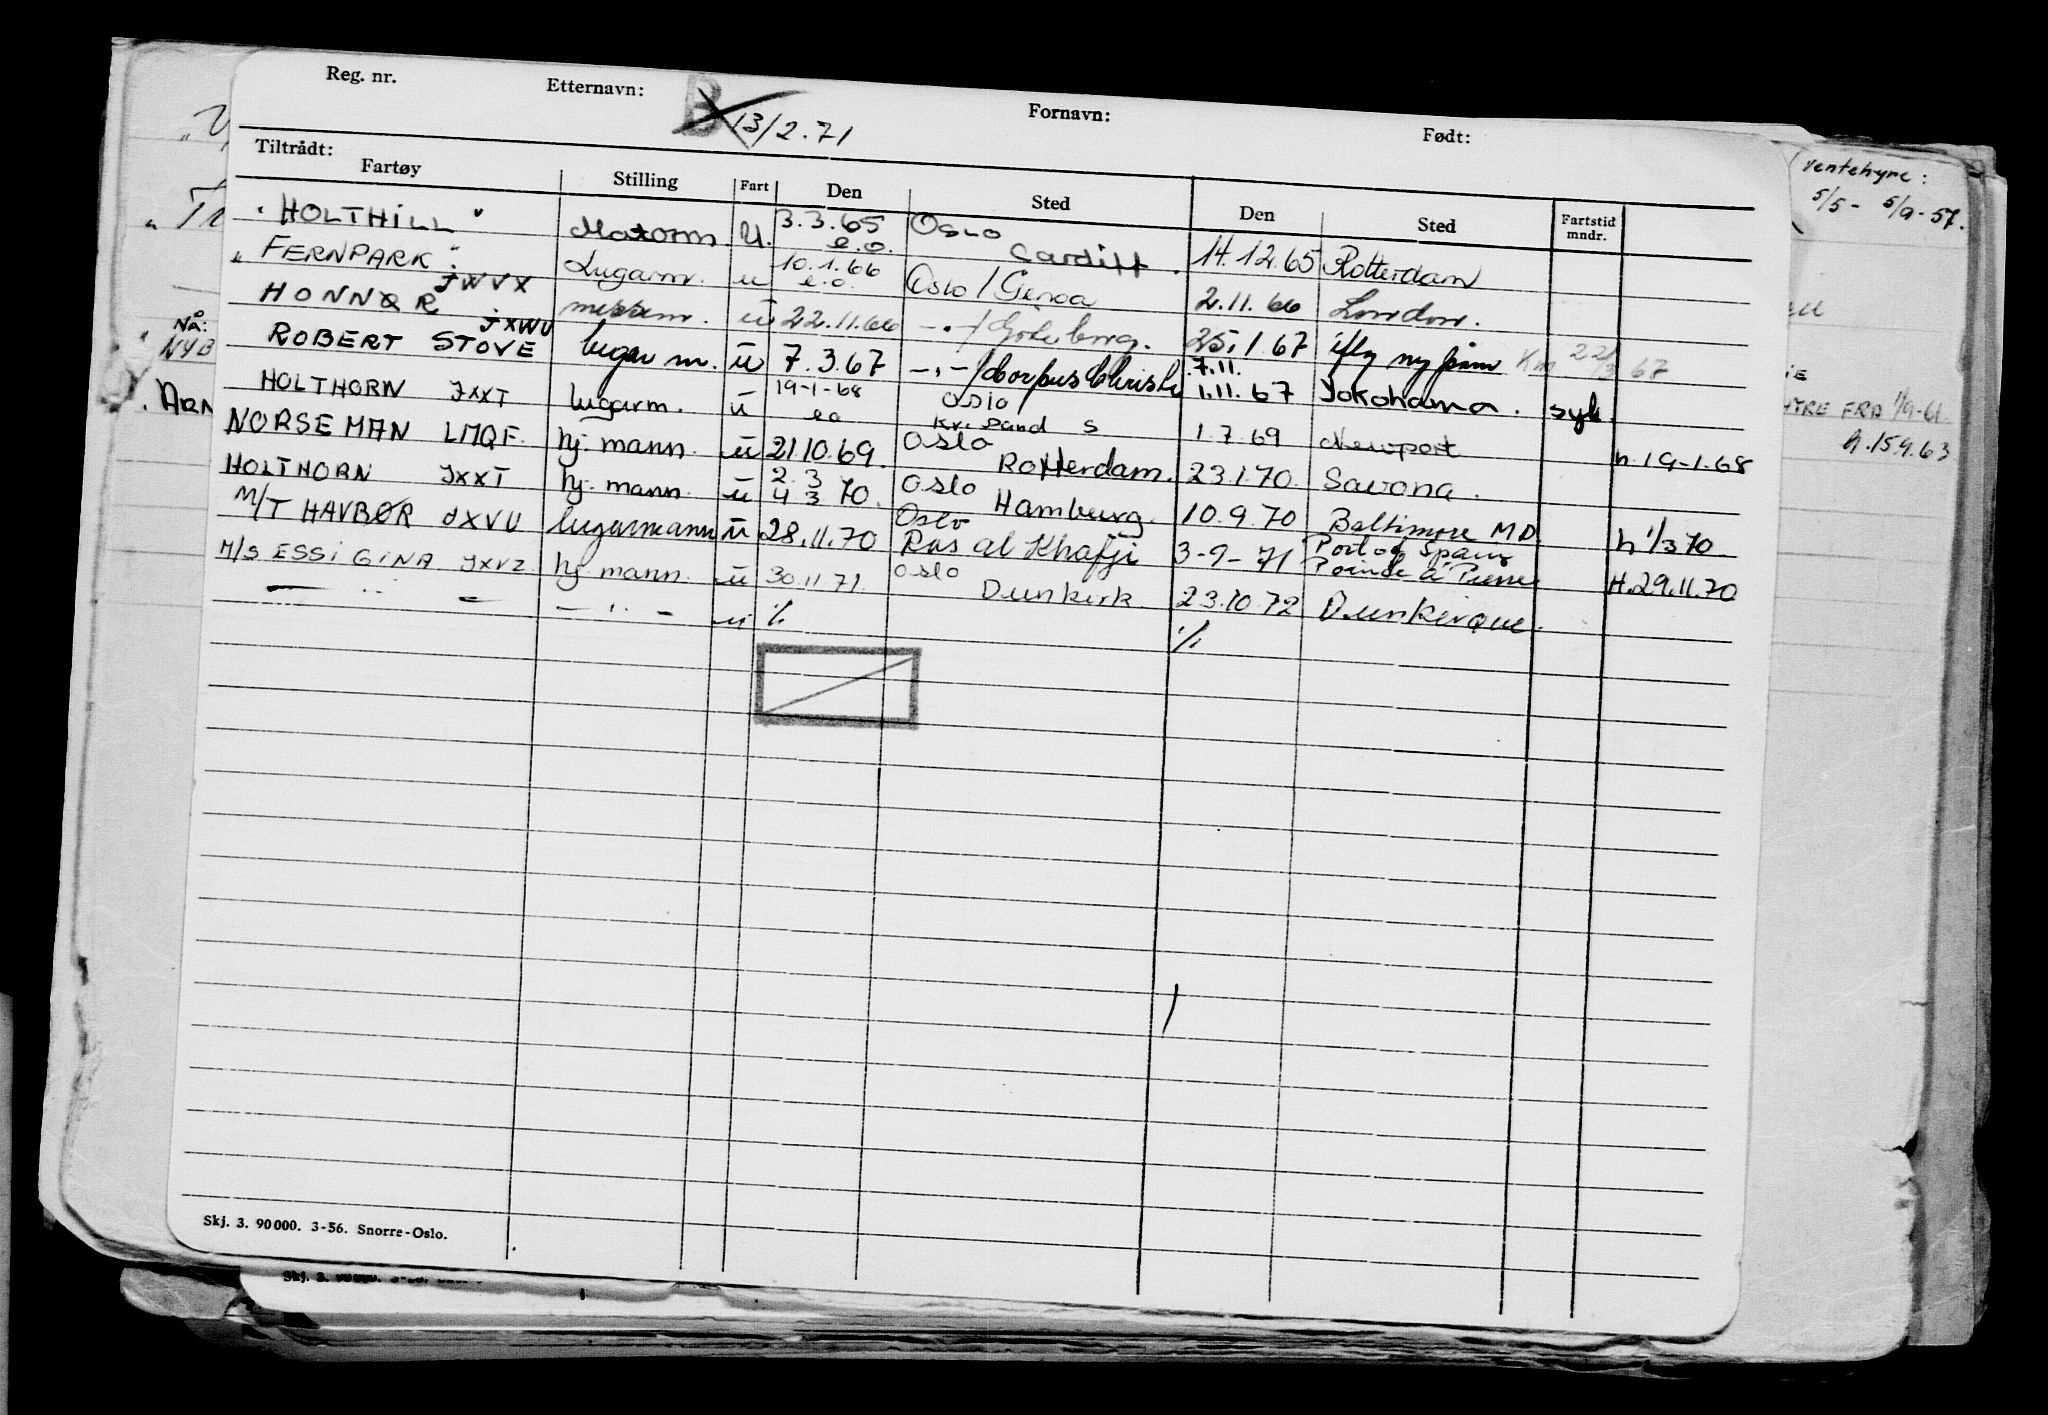 Reg. nr. Etternavn: B 13/2.71 Fornavn: Født:
Tiltrådt:
Fartøy Stilling Fart Den Sted Den Sted Fartstid mndr.
"HOLTHILL" Motorm. U. 3.3.65 e.o. Oslo Cardiff. 14.12.65 Rotterdam
"FERNPARK" JWVX Lugarm. u 10.1.66 e.o. Oslo / Genoa 2.11.66 London.
HONNØR JXWU messem. u 22.11.66 -"-/ Göteborg. 25.1.67 iflg ny påm Km 22/3 67
ROBERT STOVE lugar m. u 7.3.67 -"-/ Corpus Christi 7.11. 1.11.67 Yokohama. syk.
HOLTHORN JXXT lugarm. u 19-1-68 eo Oslo Kr. sand S 1.7.69 Newport h.19-1.68
NORSE MAN LMQF. hj. mann. u 21.10.69. Oslo Rotterdam. 23.1.70. Savona.
HOLTHORN JXXT hj. mann. u 2.3 4 3 70. Oslo Hamburg. 10.9.70 Baltimore MD. h 1/3 70
M/T HAVBØR JXVU lugarmann u 28.11.70 Oslo Ras al Khafji 3-9-71 Port of Spain Pointe a Pierre H.29.11.70
M/S ESSI GINA JXVZ hj. mann. u 30.11.71. Oslo Dunkirk. 23.10.72 Dunkerque.
— " — — " — u % %
Skj. 3. 90 000. 3-56. Snorre-Oslo.
Skj. 3. 90 000. 3-56.
NÅ:
NYB
ARN
ventehyre:
5/5 - 5/9-57.
HYRE FRA 1/9-61.
h.15.9.63